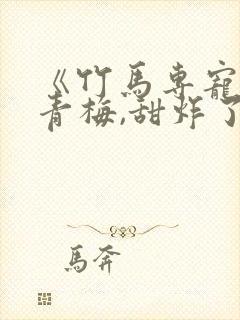 《竹馬專寵
青梅,甜炸了
馬奔